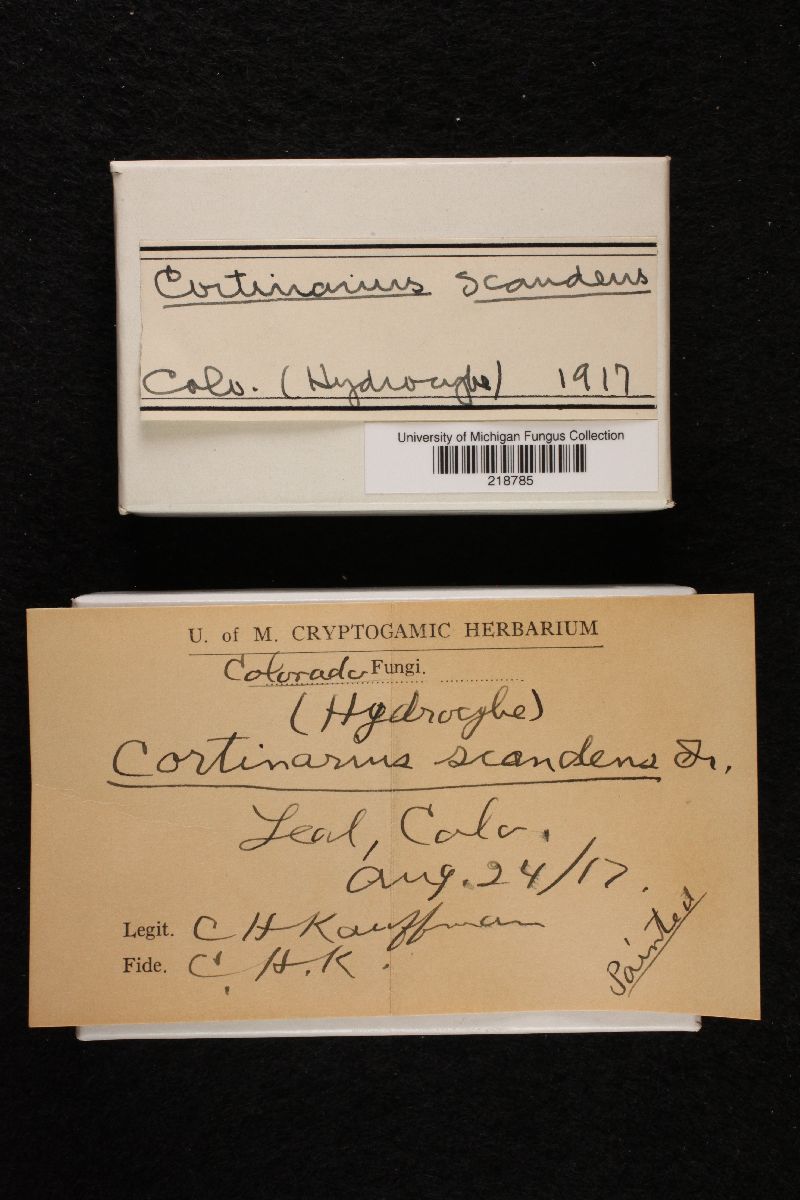 Cortinarius scandens
Colo. (Hydrocybe) 1917
University of Michigan Fungus Collection
218785
U. of M. CRYPTOGAMIC HERBARIUM
Colorado Fungi.
(Hydrocybe)
Cortinarius scandens Fr.
Leal, Colo.
Aug. 24/17.
Legit. C H Kauffman
Fide. C. H. K.
Painted